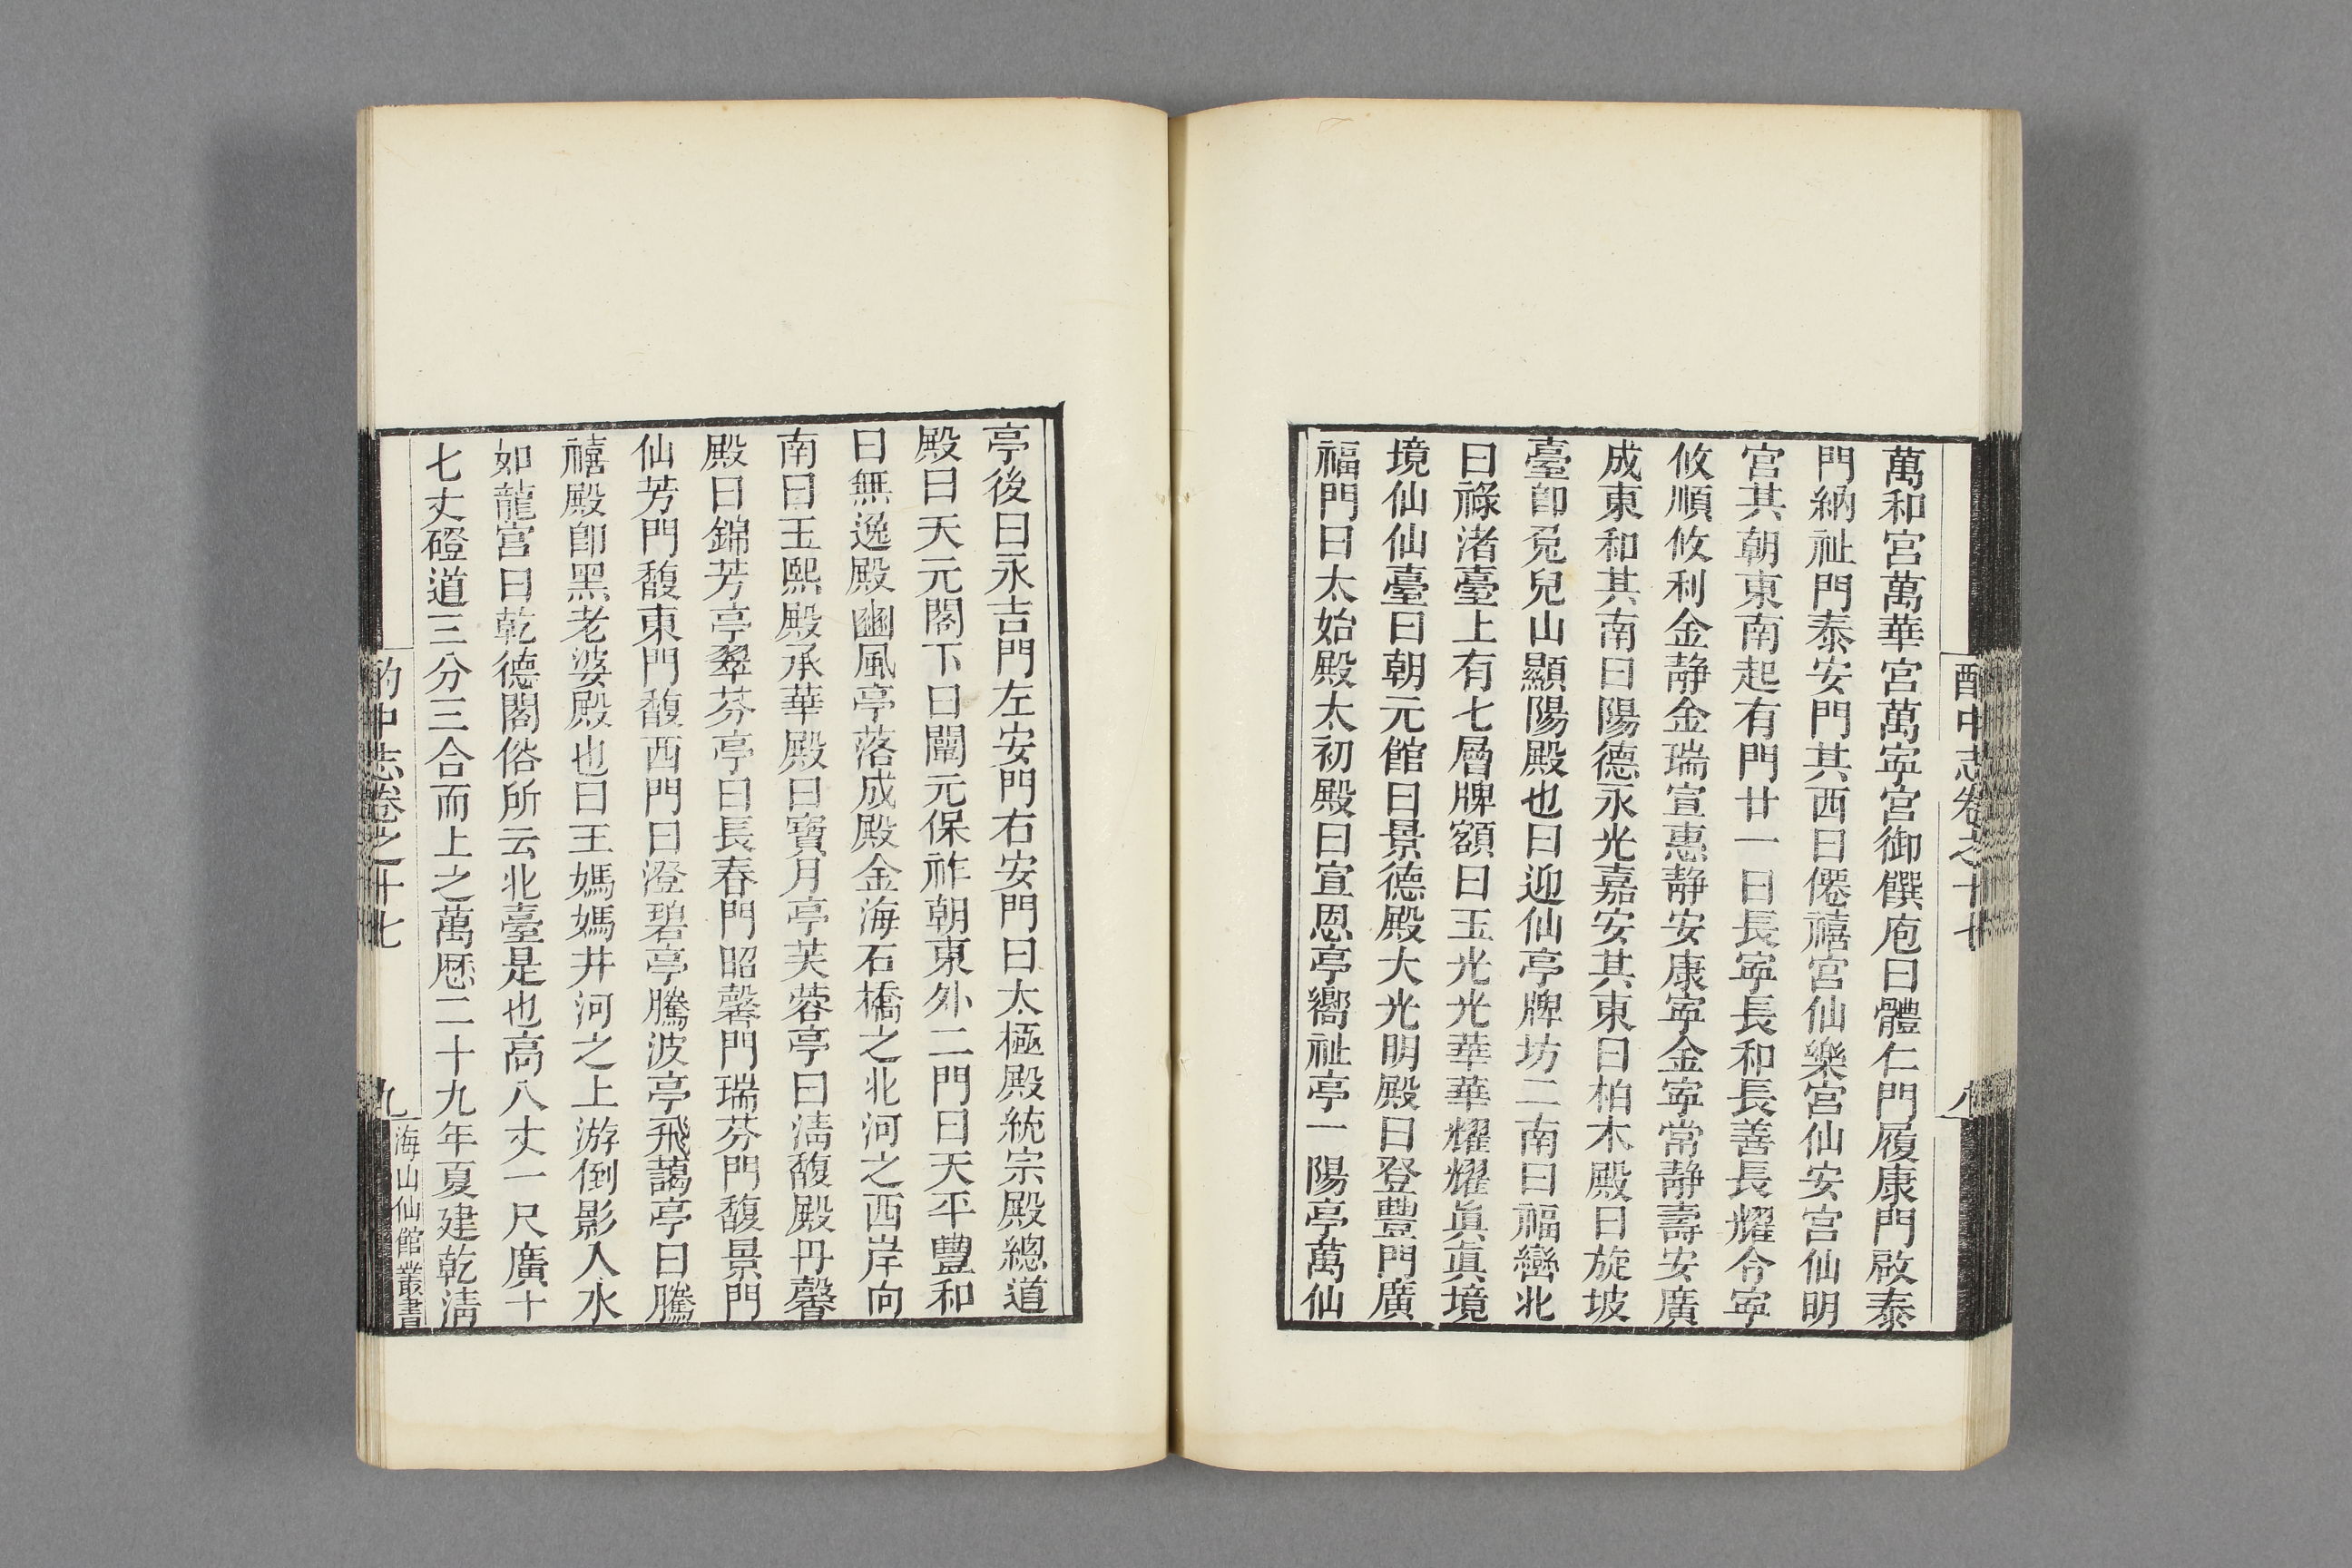 酌中志卷之十七
八
萬和宮萬華宮萬寜宮御饌庖曰體仁門履康門啟泰
門納祉門泰安門其西曰僊禧宮仙樂宮仙安宮仙明
宮其朝東南起有門廿一曰長寜長和長善長耀令寜
攸順攸利金静金瑞宣惠静安康寜金寜常静壽安廣
成東和其南曰陽德永光嘉安其東曰柏木殿曰旋坡
臺卽兎兒山顯陽殿也曰迎仙亭牌坊二南曰福巒北
曰祿渚臺上有七層牌額曰玉光光華華耀耀眞眞境
境仙仙臺曰朝元館曰景德殿大光明殿曰登豐門廣
福門曰太始殿太初殿曰宣恩亭嚮祉亭一陽亭萬仙
亭後曰永吉門左安門右安門曰太極殿統宗殿總道
殿曰天元閣下曰闡元保祚朝東外二門曰天平豐和
曰無逸殿豳風亭落成殿金海石橋之北河之西岸向
南曰玉熙殿承華殿曰寶月亭芙蓉亭曰清馥殿丹馨
殿曰錦芳亭翠芬亭曰長春門昭馨門瑞芬門馥景門
仙芳門馥東門馥西門曰澄碧亭騰波亭飛藹亭曰騰
禧殿卽黑老婆殿也曰王媽媽井河之上游倒影入水
如龍宮曰乾德閣俗所云北臺是也高八丈一尺廣十
七丈磴道三分三合而上之萬厯二十九年夏建乾清
酌中志卷之十七
九
海山仙館叢書